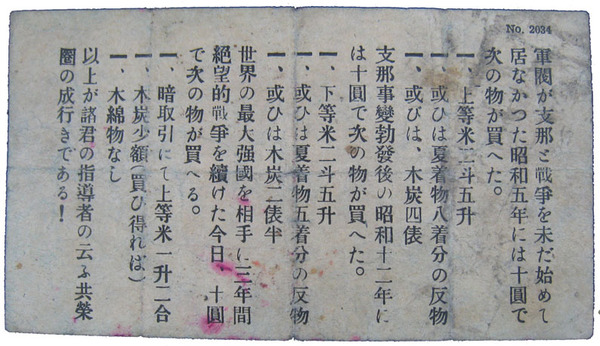 No. 2034
軍閥が支那と戰爭を未だ始めて
居なかつた昭和五年には十圓で
次の物が買へた。
一、上等米二斗五升
一、或ひは夏着物八着分の反物
一、或ひは、木炭四俵
支那事變勃發後の昭和十二年に
は十圓で次の物が買へた。
一、下等米二斗五升
一、或ひは夏着物五着分の反物
一、或ひは木炭二俵半
世界の最大强國を相手に三年間
絕望的戰爭を續けた今日、十圓
で次の物が買へる。
一、暗取引にて上等米一升二合
一、木炭少額(買ひ得れば)
一、木綿物なし
以上が諸君の指導者の云ふ共榮
圈の成行きである!